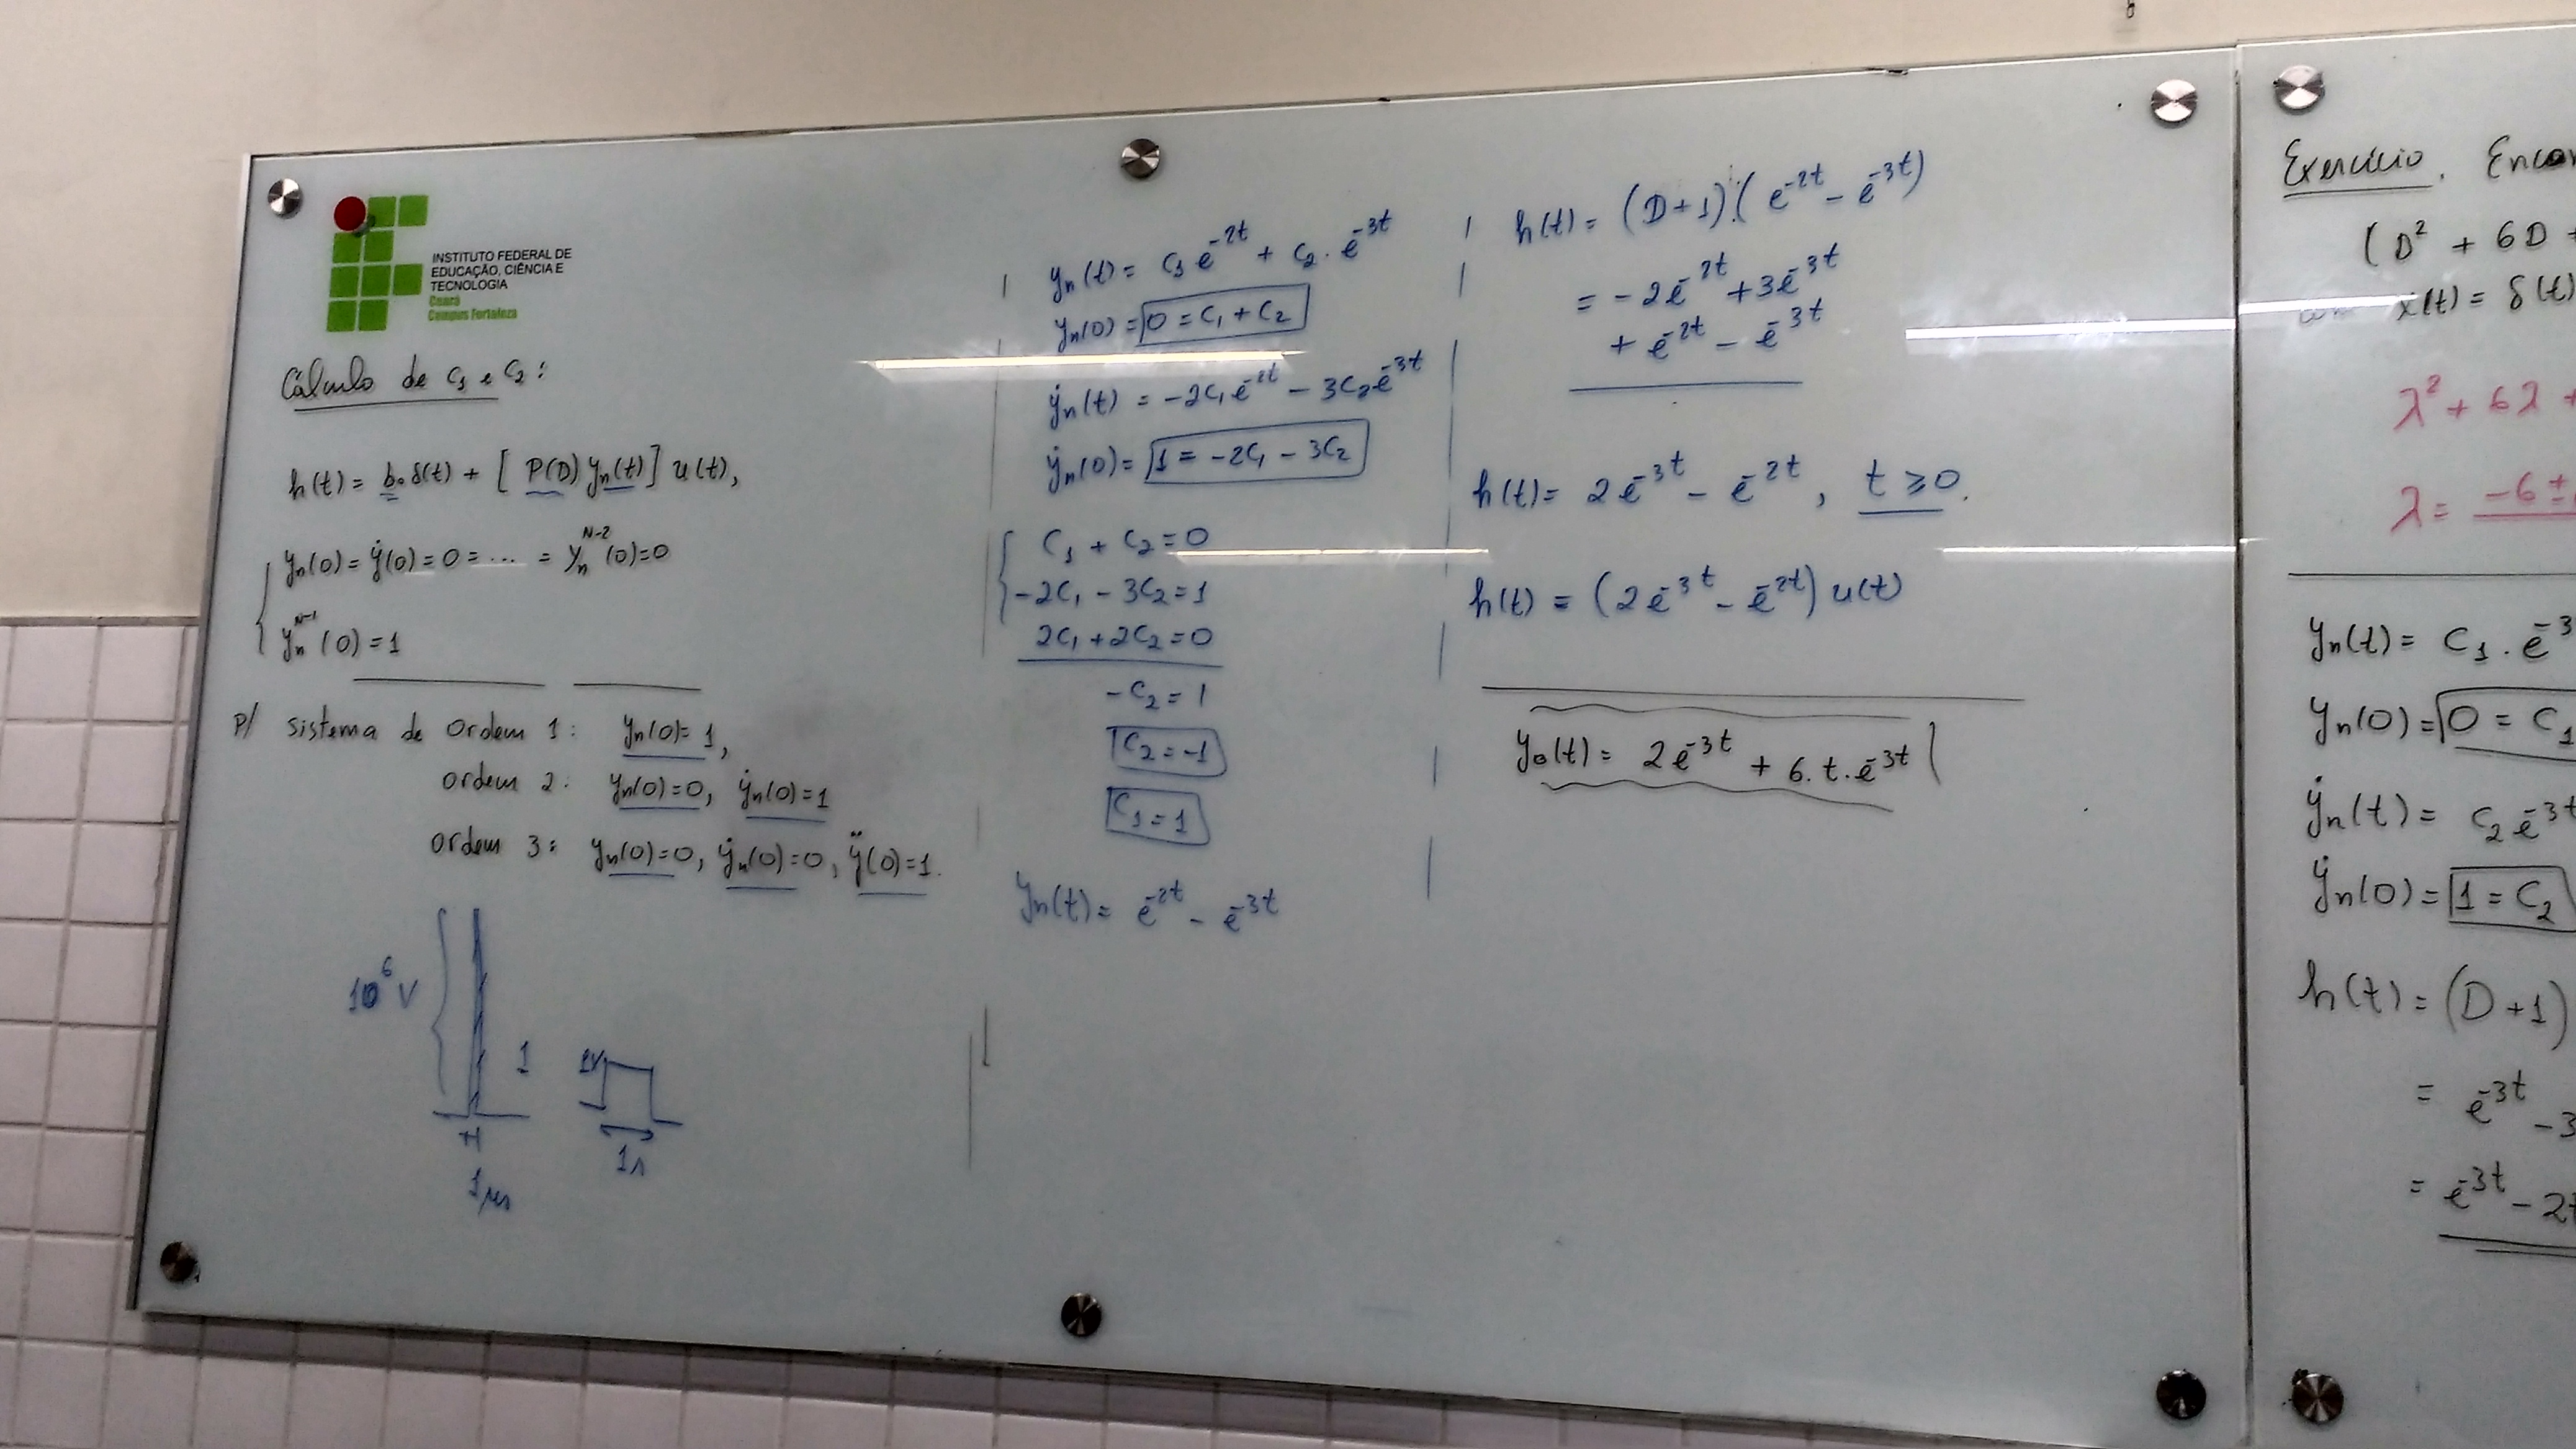 INSTITUTO FEDERAL DE
EDUCAÇÃO, CIÊNCIA E
TECNOLOGIA
Ceará
Campus Fortaleza
Cálculo de C₁ e C₂:
h(t) = b₀ δ(t) + [ P(D) yₙ(t) ] u(t),
yₙ(0) = ẏ(0) = 0 = ... = yₙᴺ⁻²(0) = 0
yₙᴺ⁻¹(0) = 1
P/ sistema de ordem 1: yₙ(0) = 1,
ordem 2: yₙ(0) = 0, ẏₙ(0) = 1
ordem 3: yₙ(0) = 0, ẏₙ(0) = 0, ÿ(0) = 1.
10⁶ V
1
1V
1s
1μs
yₙ(t) = C₁ e⁻²ᵗ + C₂ . e⁻³ᵗ
yₙ(0) = 0 = C₁ + C₂
ẏₙ(t) = -2C₁ e⁻²ᵗ - 3C₂ e⁻³ᵗ
ẏₙ(0) = 1 = -2C₁ - 3C₂
C₁ + C₂ = 0
-2C₁ - 3C₂ = 1
2C₁ + 2C₂ = 0
-C₂ = 1
C₂ = -1
C₁ = 1
yₙ(t) = e⁻²ᵗ - e⁻³ᵗ
h(t) = (D+1).(e⁻²ᵗ - e⁻³ᵗ)
= -2e⁻²ᵗ + 3e⁻³ᵗ
+ e⁻²ᵗ - e⁻³ᵗ
h(t) = 2e⁻³ᵗ - e⁻²ᵗ, t ⩾ 0.
h(t) = (2e⁻³ᵗ - e⁻²ᵗ) u(t)
y₀(t) = 2e⁻³ᵗ + 6.t.e⁻³ᵗ
Exercício.
(D² + 6D +
x(t) = δ(t)
λ² + 6λ +
λ = -6 ±
yₙ(t) = C₁ . e⁻³
yₙ(0) = 0 = C₁
ẏₙ(t) = C₂ e⁻³ᵗ
ẏₙ(0) = 1 = C₂
h(t) = (D+1)
= e⁻³ᵗ - 3
= e⁻³ᵗ - 2t